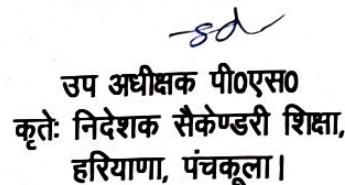 -sd
उप अधीक्षक पी०एस०
कृतेः निदेशक सैकेण्डरी शिक्षा,
हरियाणा, पंचकूला।